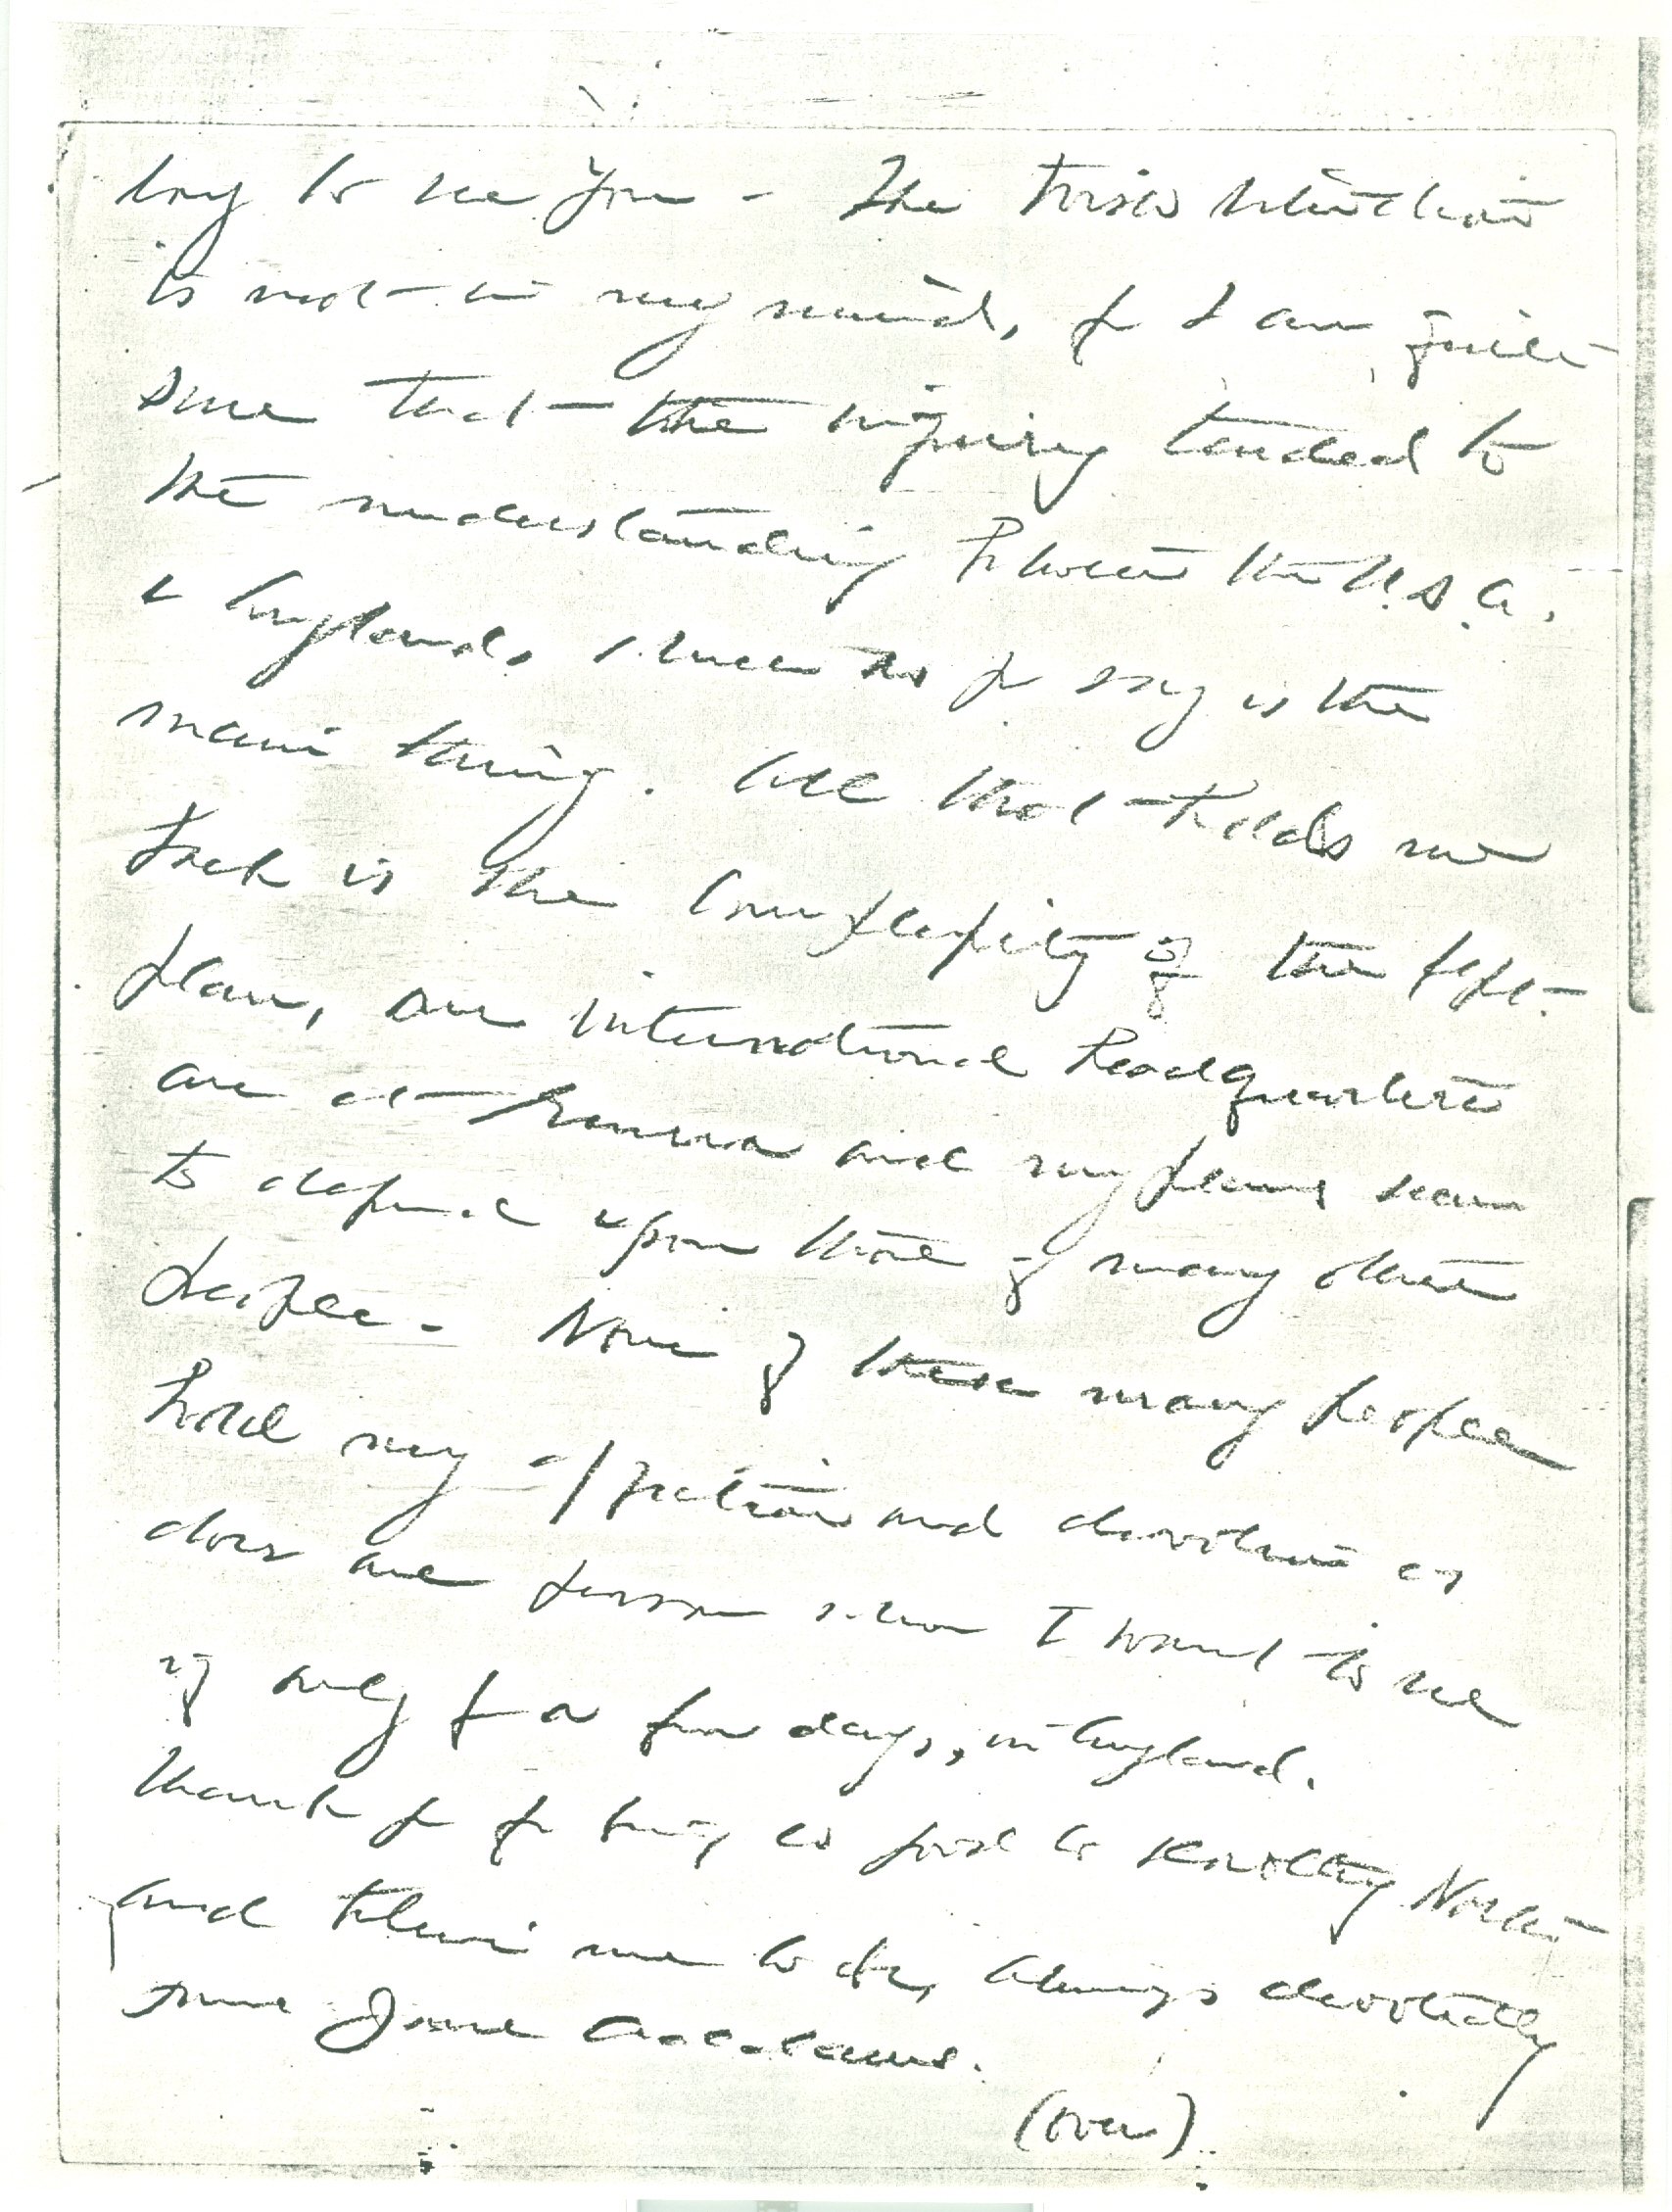 try to see you - The Irish situation
is not in my mind, for I am quite
sure that the inquiry tended to
the understanding between the U.S.A.
& England, which so for say is the
main thing. All that holds me
back is the complexity of the
plan, our international headquarters
are at Geneva and my plans seem
to depend upon those of many other
people - None of these many people
hold my affection and devotion as
does one person whom I want to see
if only for a few days, in England.
Thank you for being so good to Knolling North
and believe me to be, always devotedly
yours Jane Addams.
(over)